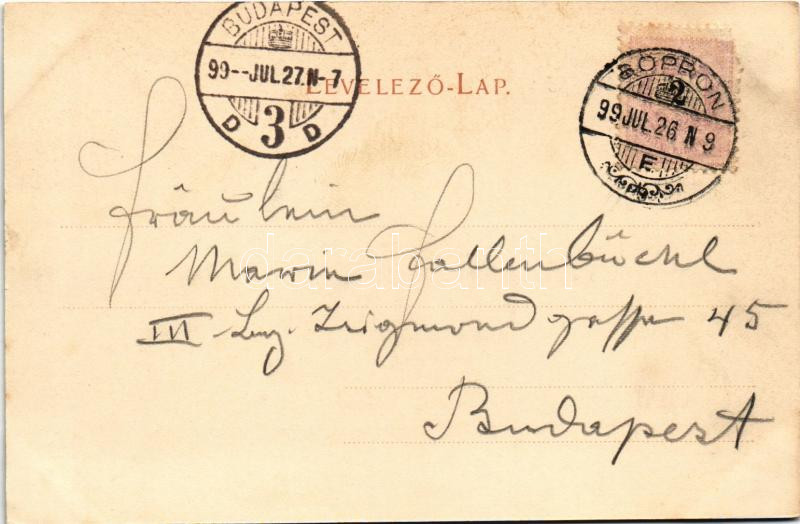 BUDAPEST
99--JUL.27.N-7
D 3 D
LEVELEZŐ-LAP.
SOPRON
2
99 JUL.26 N 9
E.
Fräulein
Marie Fallenbüchl
III Zsigmondgasse 45
Budapest
darabanth